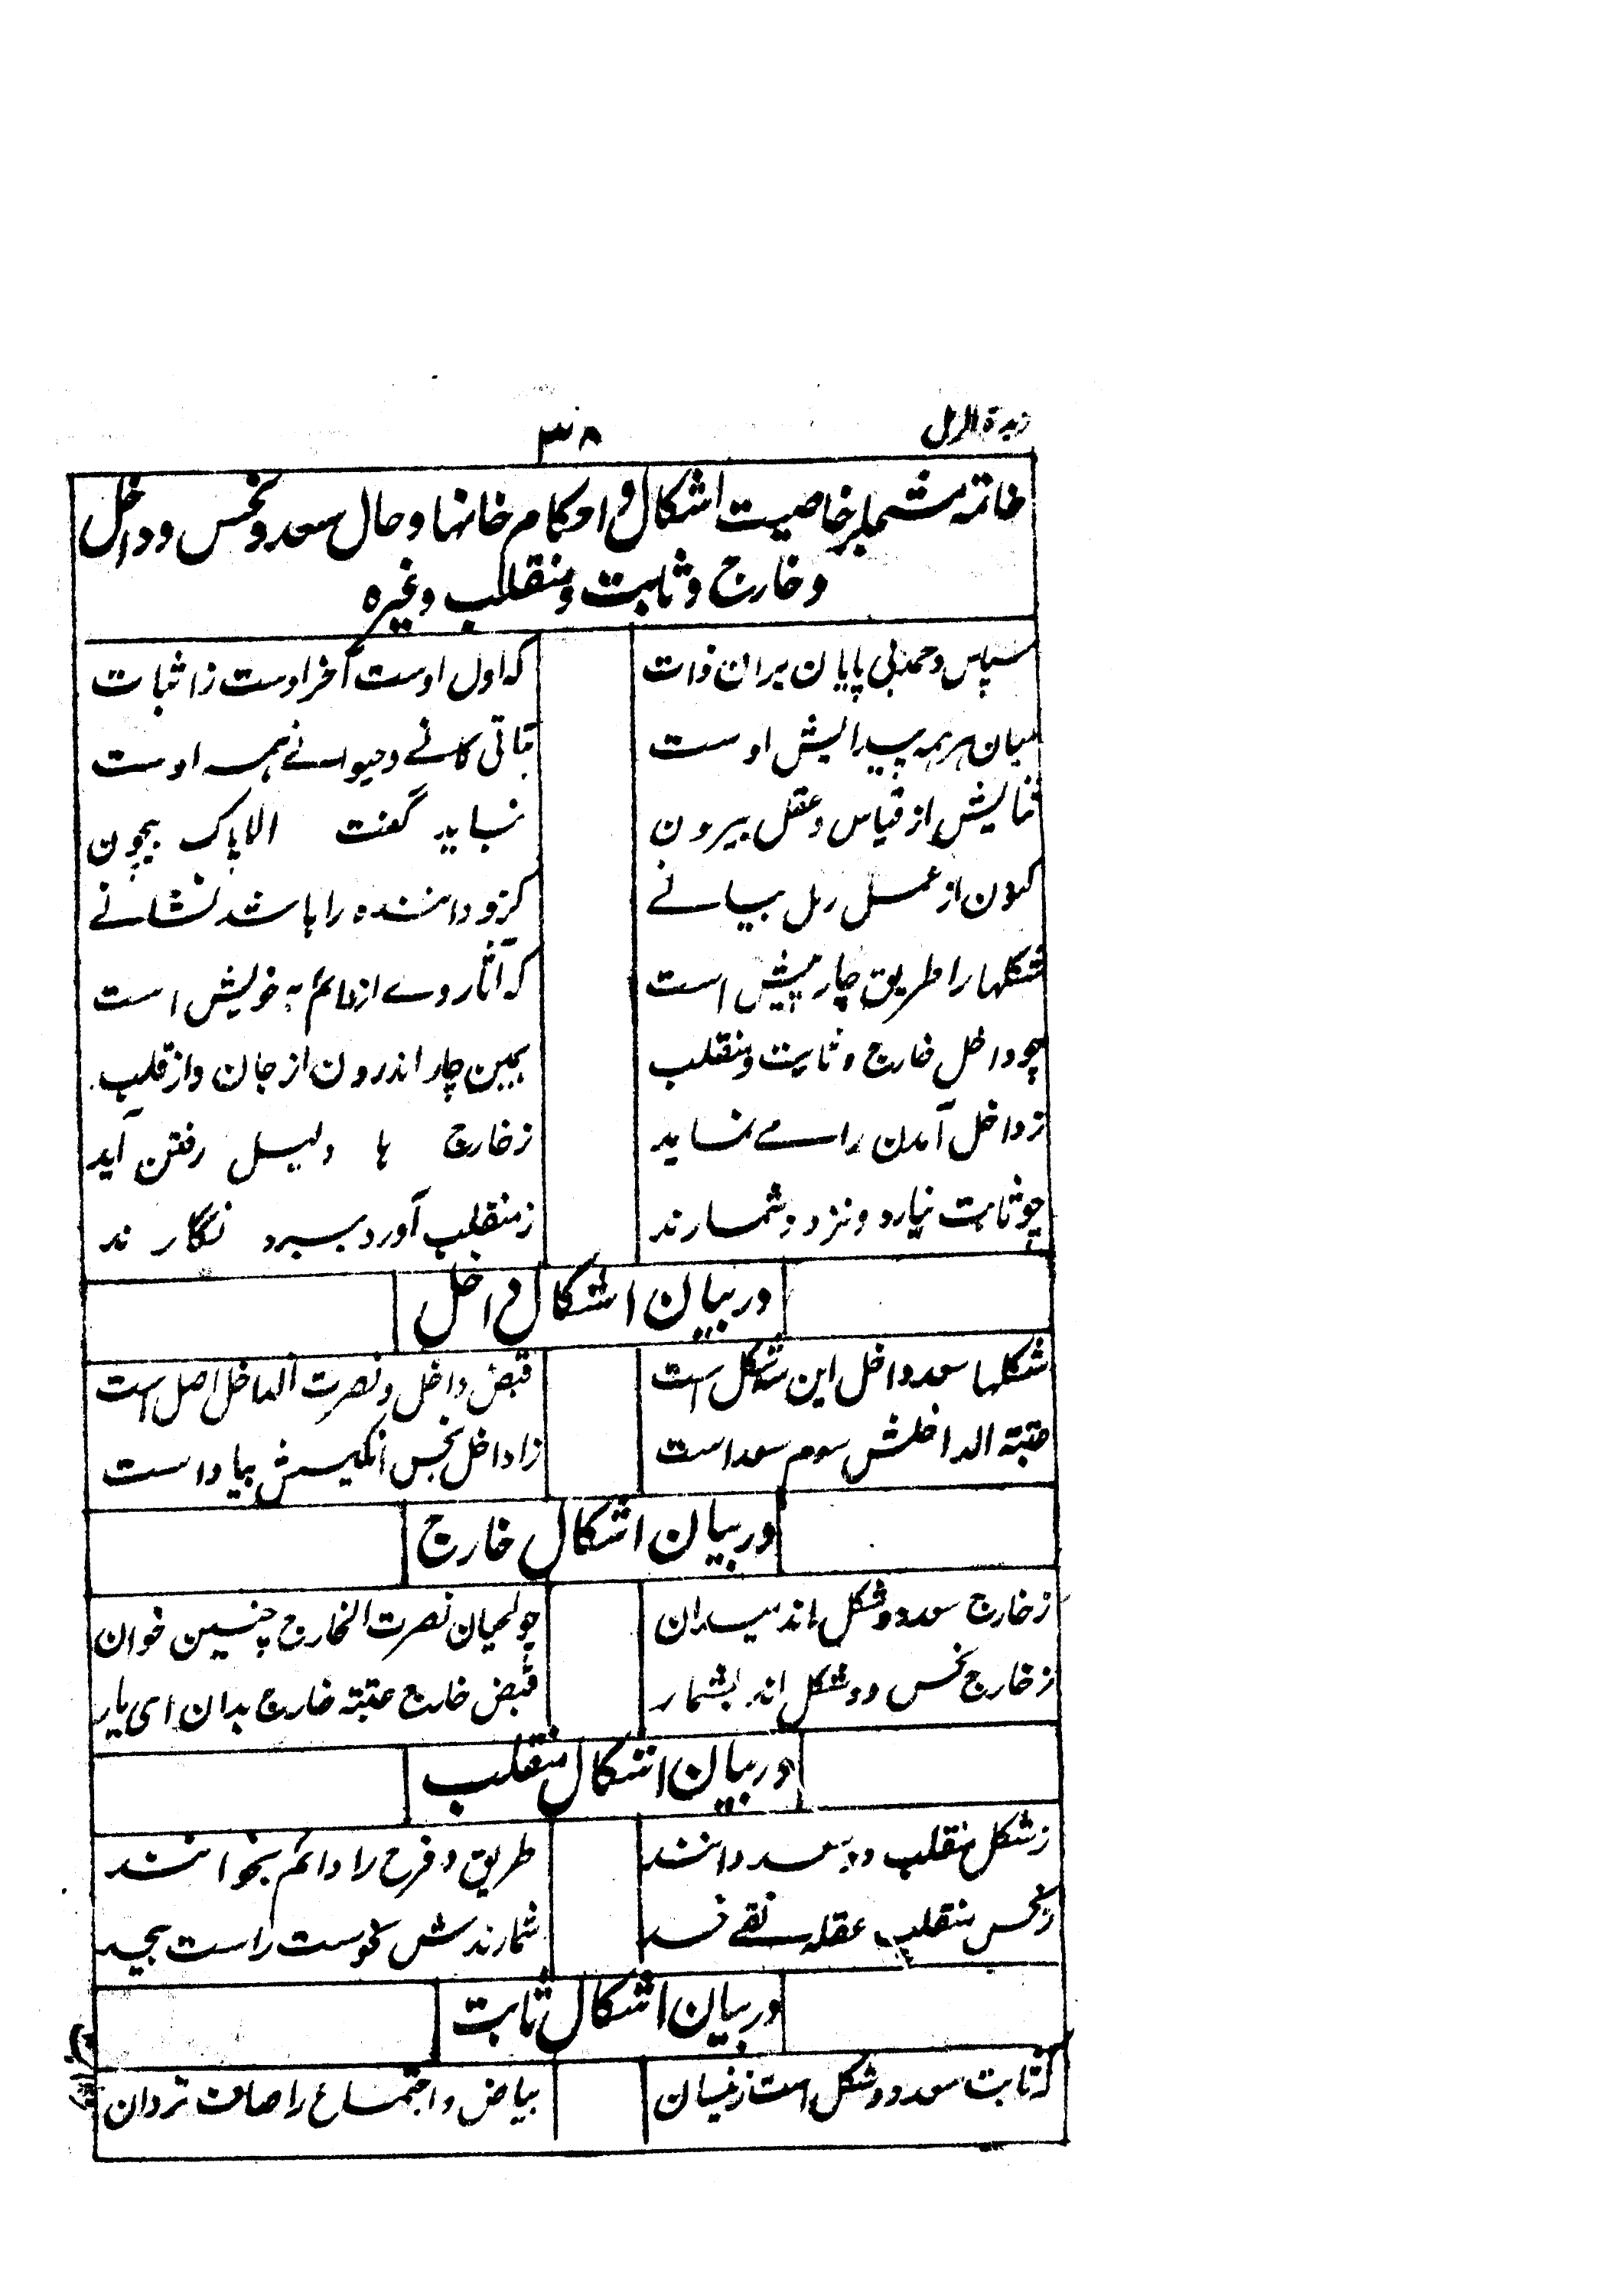 زبدة الرمل
۳۸
خاتمه مشتملبر خاصیت اشکال و احکام خانها و حال سعد و نحس و داخل
و خارج و ثابت و منقلب و غیره
سپاس و حمد بی پایان بران ذات که اول اوست آخر اوست ز اثبات
میان هر همه پیدایش اوست نباتی کانے و حیوانے همه اوست
ثنایش از قیاس و عقل بیرون نباید گفت الا پاک بیچون
کنون از عمل رمل بیانے کزو داننده را باشد نشانے
شکلها را طریق چار پیش است که آثار وے از خویش است
چو داخل خارج و ثابت و منقلب ببین چار اندرون از جان و از قلب
ز داخل آمدن راے نماید ز خارج ها دلیل رفتن آید
چو ثابت نیارد و نزد شمارند ز منقلب آورد ببرد نگارند
در بیان اشکال داخل
شکلها سعد داخل این شکل است قبض داخل و نصرت الداخل اصل است
عتبة الداخلش سوم سعد است داخل نحس انکیسش بیاد است
در بیان اشکال خارج
ز خارج سعد دو شکل اند میدان چو لحیان نصرت الخارج چنین خوان
ز خارج نحس دو شکل اند بشمار قبض خارج عتبة خارج بدان ای یار
در بیان اشکال منقلب
ز شکل منقلب دو سعد دانند طریق و فرح را دائم بخوانند
ز نحس منقلب عقله نقے شمارندش نحوست راست بیحد
در بیان اشکال ثابت
که ثابت سعد دو شکل است زینسان بیاض و اجتماع را صاف تر دان